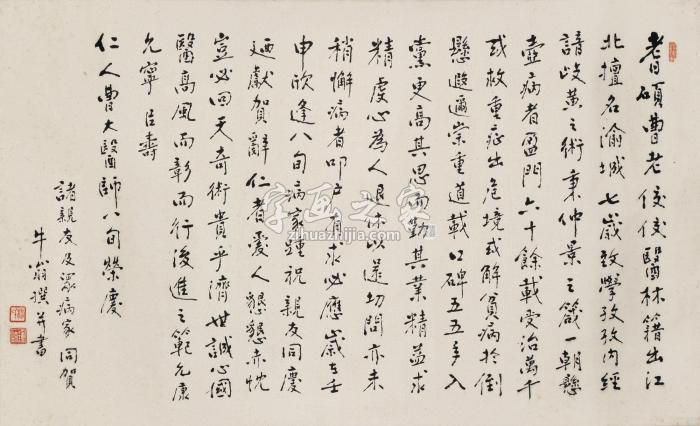 耆碩曹老佼佼醫林籍出江
北擅名渝城七歲致學孜孜內經
諳歧黃之術秉仲景之箴一朝懸
壺病者盈門六十餘載受治萬千
或救重症出危境或解貧病於倒
懸遐邇崇重道載口碑五五年入
黨更高其思而勤其業精益求
精虔心為人退休以還切問亦未
稍懈病者叩五有求必應歲在壬
申欣逢八旬病家踵祝親友同慶
廼獻賀辭 仁者愛人懇懇赤忱
豈必回天奇術貴乎濟世誠心國
醫高風而彰而行後進之範允康
允寧臣壽
仁人曹大醫師八旬榮慶
諸親友及眾病家同賀
牛翁撰并書
字画之家
zihuazhijia.com